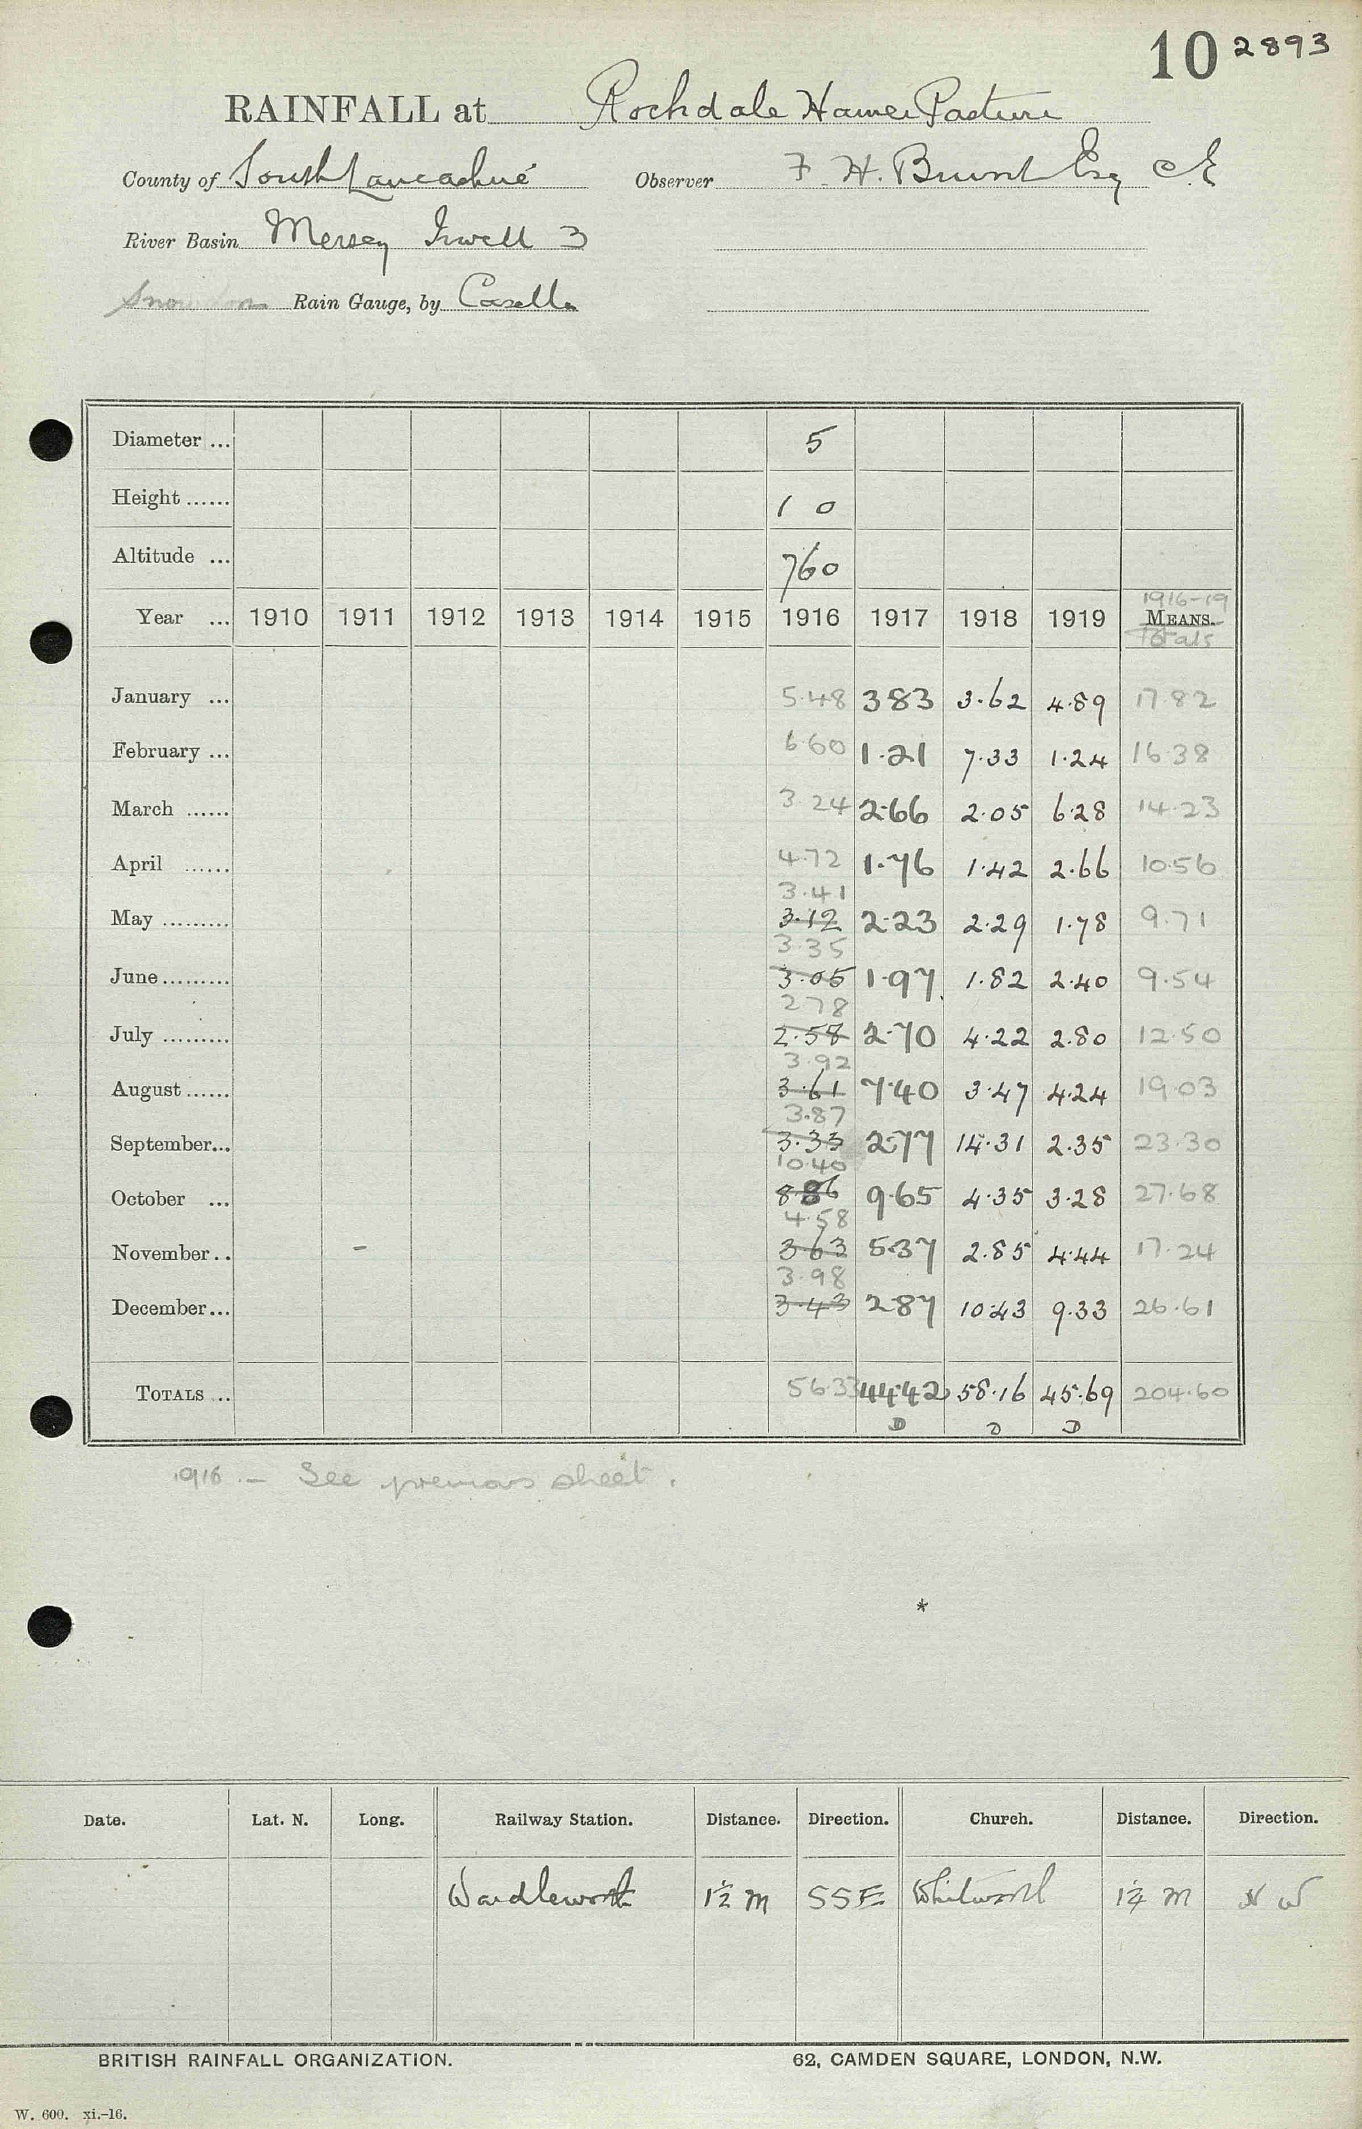 10 2893
RAINFALL at Rochdale Hamer Pasture
County of South Lancashire Observer F. H. Brunt Esq CE
River Basin Mersey Irwell 3
Snowdon Rain Gauge, by Casella
Diameter ... 5
Height ...... 1 0
Altitude ... 760
1916-19
Year ... 1910 1911 1912 1913 1914 1915 1916 1917 1918 1919 MEANS.
Totals
January ... 5.48 3 83 3.62 4.89 17.82
February ... 6.60 1.21 7.33 1.24 16.38
March ...... 3.24 2.66 2.05 6.28 14.23
April ...... 4.72 1.76 1.42 2.66 10.56
3.41
May ......... 3.12 2.23 2.29 1.78 9.71
3.35
June ......... 3.05 1.97 1.82 2.40 9.54
2 78
July ......... 2.58 2.70 4.22 2.80 12.50
3.92
August ...... 3.61 7.40 3.47 4.24 19.03
3.87
September... 3.33 2.77 14.31 2.35 23.30
10.40
October ... 8.86 9.65 4.35 3.28 27.68
4.58
November .. - 3 63 5.37 2.85 4.44 17.24
3.98
December... 3.43 2.87 10.43 9.33 26.61
TOTALS .. 56.33 44.42 58.16 45.69 204.60
D D D
1916 - See previous sheet.
*
Date. Lat. N. Long. Railway Station. Distance. Direction. Church. Distance. Direction.
Wardleworth 1½ m SSE Whitworth 1¼ m N W
BRITISH RAINFALL ORGANIZATION. 62, CAMDEN SQUARE, LONDON, N.W.
W. 600. xi.-16.